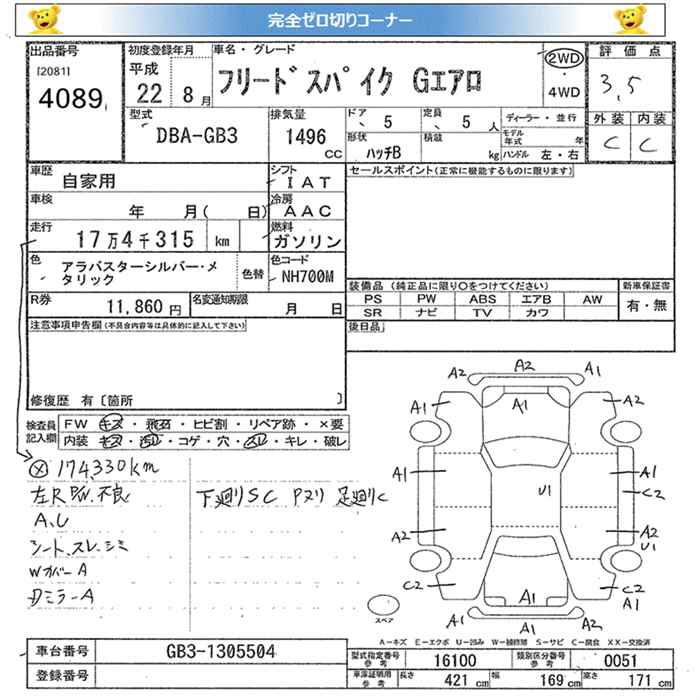 完全ゼロ切りコーナー
出品番号
[2081]
4089
初度登録年月
平成
22年 8月
車名・グレード
フリード スパイク Gエアロ
2WD
・
4WD
評価点
3.5
外装 内装
C C
型式
DBA-GB3
排気量
1496
cc
ドア 5
定員 5 人
形状
ハッチB
積載
kg
ディーラー・並行
モデル年式 年
ハンドル 左・右
車歴
自家用
シフト
IAT
車検
年 月( 日)
冷房
AAC
走行
17万4千315 km
燃料
ガソリン
色
アラバスターシルバー・メタリック
色替
色コード
NH700M
R券
11,860 円
名変通知期限
月 日
セールスポイント(正常に機能するものに限ります)
装備品 (純正品に限り○をつけてください)
PS PW ABS エアB AW
SR ナビ TV カワ
新車保証書
有・無
後日品
注意事項申告欄(不具合内容等は具体的に記入して下さい)
修復歴 有〔箇所 〕
検査員記入欄
FW キズ・飛石・ヒビ割・リペア跡・×要
内装 キズ・汚れ・コゲ・穴・スレ・キレ・破レ
174,330km
左R P/W 不良
A,U
シート、スレ、シミ
Wカバー A
Dミラー A
下廻りSC Pヌリ 足廻りC
A2 A2 A1
A1 A1 A2
A1 U1 A1
C2
A2 A2
U1
C2 A1 C2
A1
A1 A1 A2
スペア
A－キズ E－エクボ U－凹み W－補修跡 S－サビ C－腐食 XX－交換済
車台番号
GB3-1305504
登録番号
型式指定番号 参考
16100
類別区分番号 参考
0051
車庫証明用 参考
長さ 421 cm
幅 169 cm
高さ 171 cm